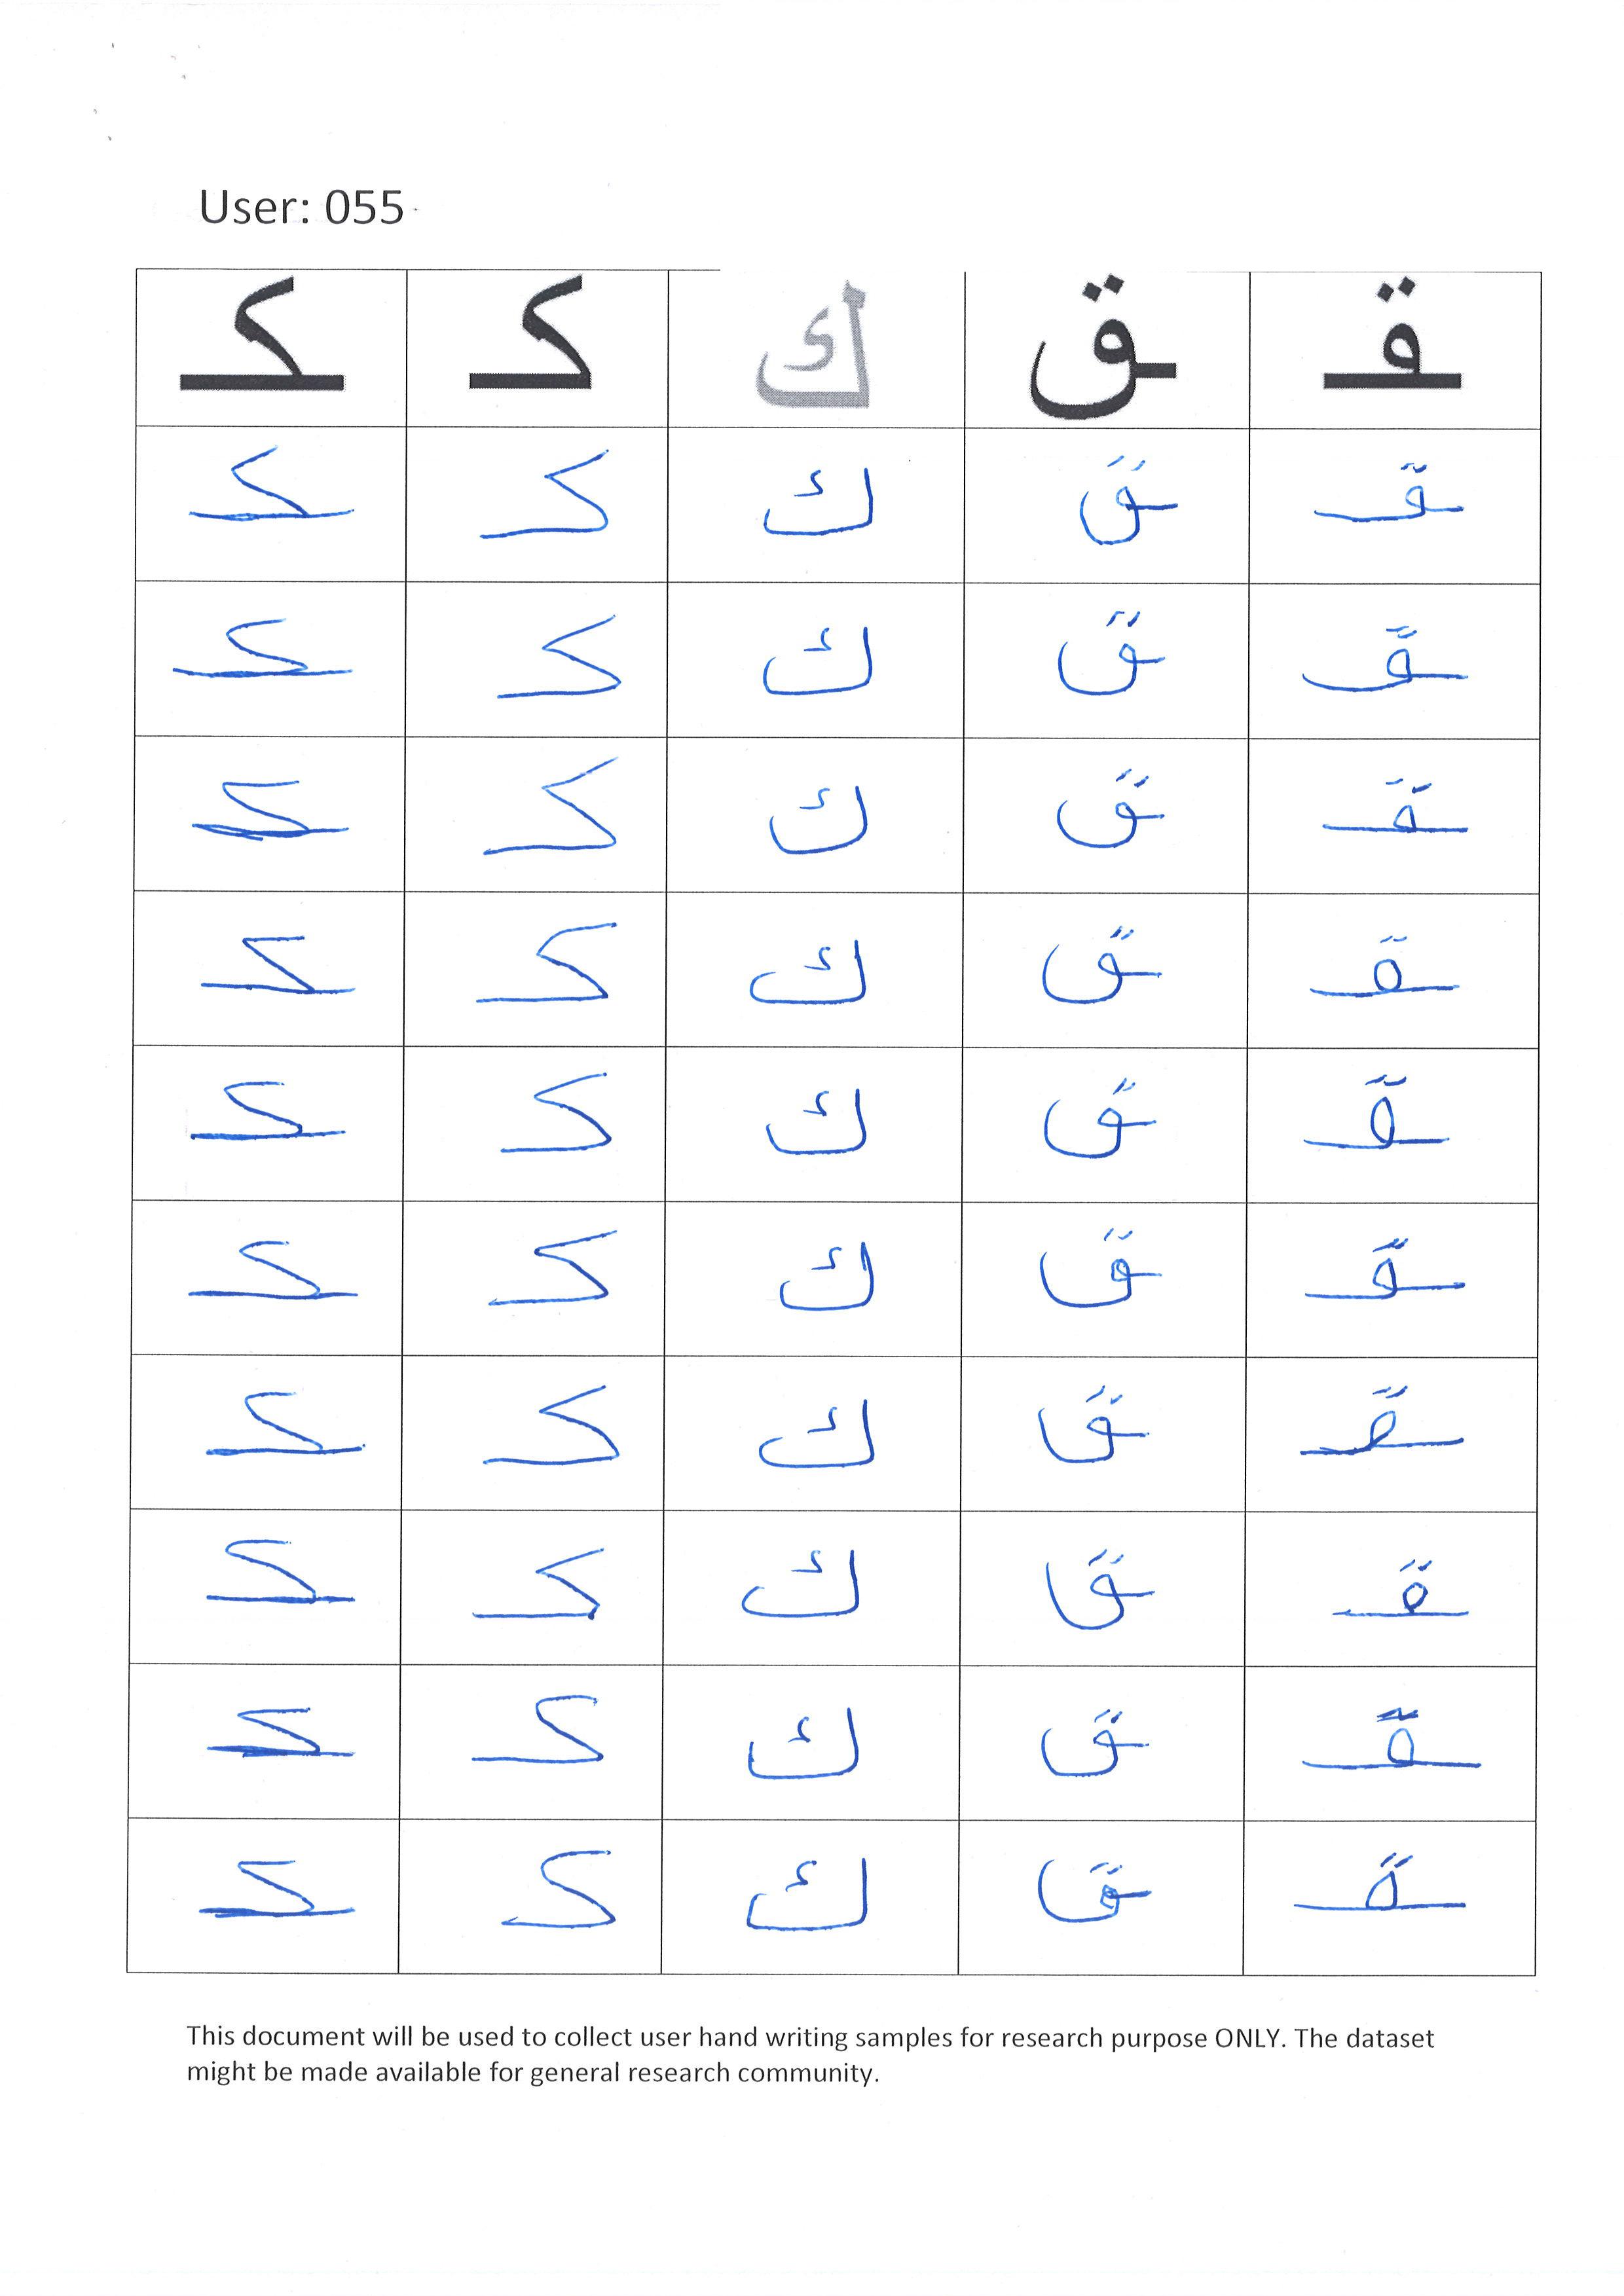 User: 055
ـكـ كـ ك ـق ـقـ
ـكـ كـ ك ـق ـقـ
ـكـ كـ ك ـق ـقـ
ـكـ كـ ك ـق ـقـ
ـكـ كـ ك ـق ـقـ
ـكـ كـ ك ـق ـقـ
ـكـ كـ ك ـق ـقـ
ـكـ كـ ك ـق ـقـ
ـكـ كـ ك ـق ـقـ
ـكـ كـ ك ـق ـقـ
ـكـ كـ ك ـق ـقـ
This document will be used to collect user hand writing samples for research purpose ONLY. The dataset
might be made available for general research community.